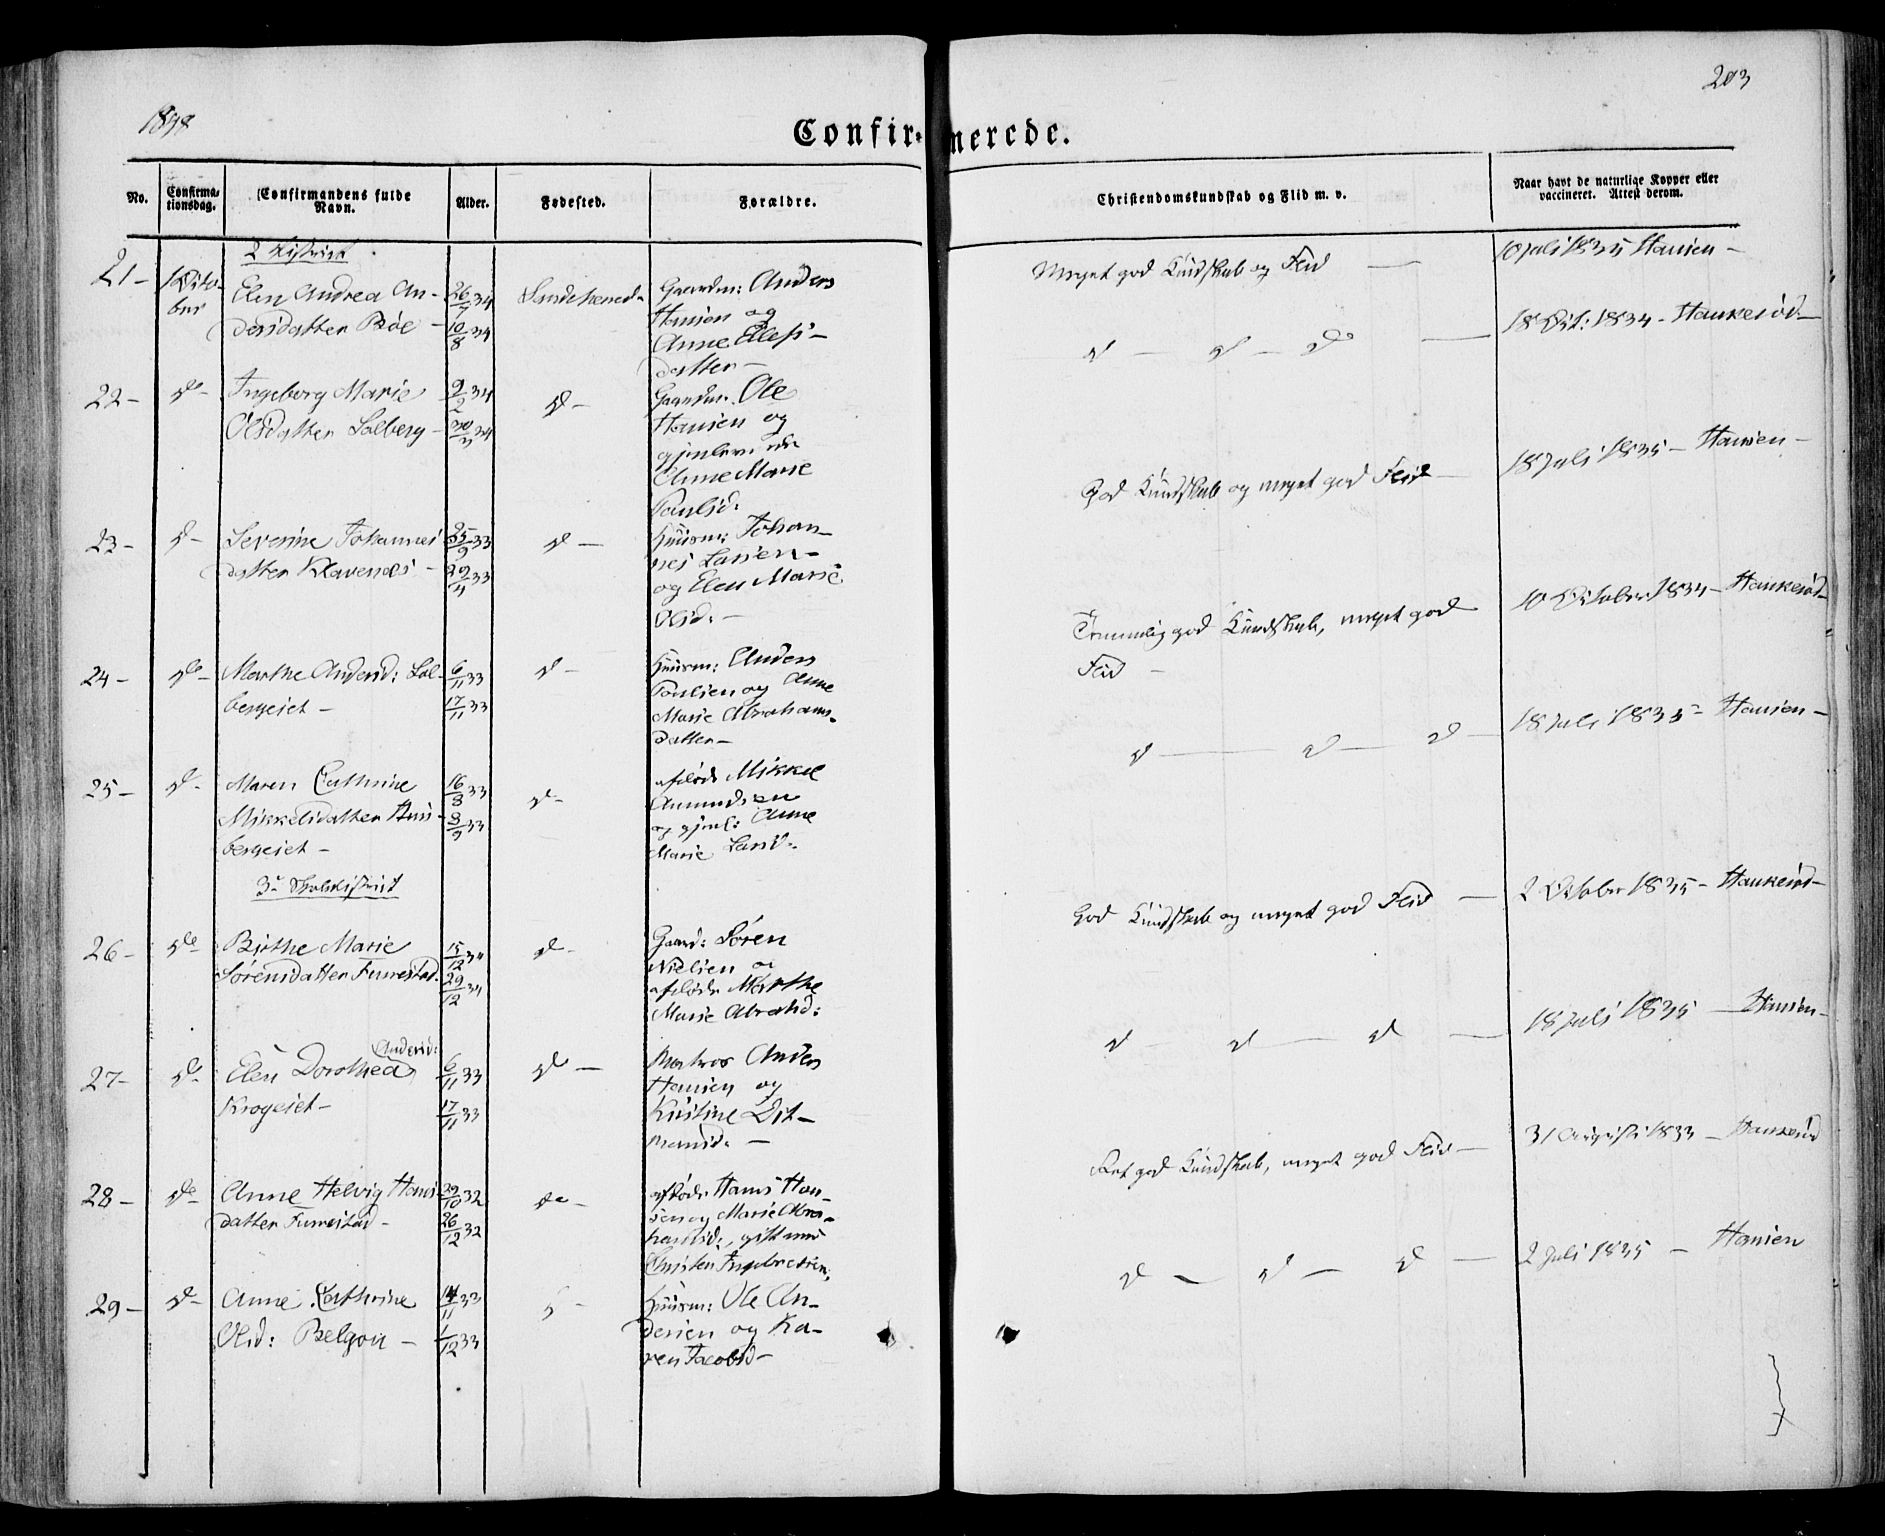 1848
203
Confirmerede.
No.
Confirma-
tionsdag.
Confirmandens fulde
Navn.
Alder.
Fødested.
Forældre.
Christendomskundskab og Flid m. v.
Naar havt de naturlige Kopper eller
vaccineret. Attest derom.
2 District
21 –
1 Octo-
ber
Elen Andrea An-
dersdatter Bøe –
26/7 34
10/8 34
Sandeherred –
Gaardm: Anders
Hansen og
Anne Olefs-
datter –
Meget god Kundskab og Flid –
10 Juli 1835 Hansen –
22 –
do –
Ingeborg Marie
Olsdatter Solberg –
9/2 34
30/3 34
do –
Gaardm. Ole
Hansen og
Anne Marie
Poulsd:
do – do – do –
18 Oct: 1834 – Haukerød –
23 –
do –
Severine Johannes
datter Klavenæs –
25/9 33
do –
Huusm: Johan-
nes Larsen –
og Elen Marie
Olsd: –
God Kundskab og meget god Flid –
18 Juli 1835 – Hansen –
24 –
do –
Marthe Andersd: Sol-
bergeiet –
6/11 33
17/11 33
do –
Huusm: Anders
Poulsen og Anne
Marie Abrahams-
datter –
Temmelig god Kundskab, meget god
Flid –
10 October 1834 – Haukerød –
25 –
do –
Maren Cathrine
Mikkelsdatter Huus-
bergeiet –
16/8 33
8/9 33
do –
afdøde Mikkel
Amundsen
og gjenl: Anne
Marie Larsd:
do – do – do –
18 Juli 1835 – Hansen –
3die Skoledistrict
26 –
do –
Birthe Marie
Sørensdatter Furrestad
15/12 34
29/12 34
do –
Gaardm: Søren
Nielsen og
afdøde Marthe
Marie Abrahd:
God Kundskab og meget god Flid –
2 October 1835 – Haukerød –
27 –
do –
Andersd:
Elen Dorothea
Krogeiet –
6/11 33
17/11 33
do –
Matros Anders
Hansen og
Kirstine Dit-
mansd: –
do – do – do –
18 Juli 1835 – Hansen –
28 –
do –
Anne Helvig Hans-
datter Furrestad –
29/10 32
26/12 32
do –
afdøde Hans Han-
sen og Marie Abra-
hamsd:, gift med
Christen Ingebretsen,
Ret god Kundskab, meget god Flid –
31 August 1833 – Haukerød
29 –
do –
Anne Cathrine
Olsd: Belgon –
14/11 33
1/12 33
Huusm: Ole An-
dersen og Ka-
ren Jacobsd –
do – do – do –
2 Juli 1835 – Hansen